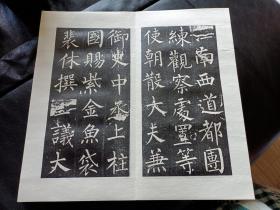 南西道都團
練觀察處置等
使朝散大夫兼
御史中丞上柱
國賜紫金魚袋
裴休撰議大